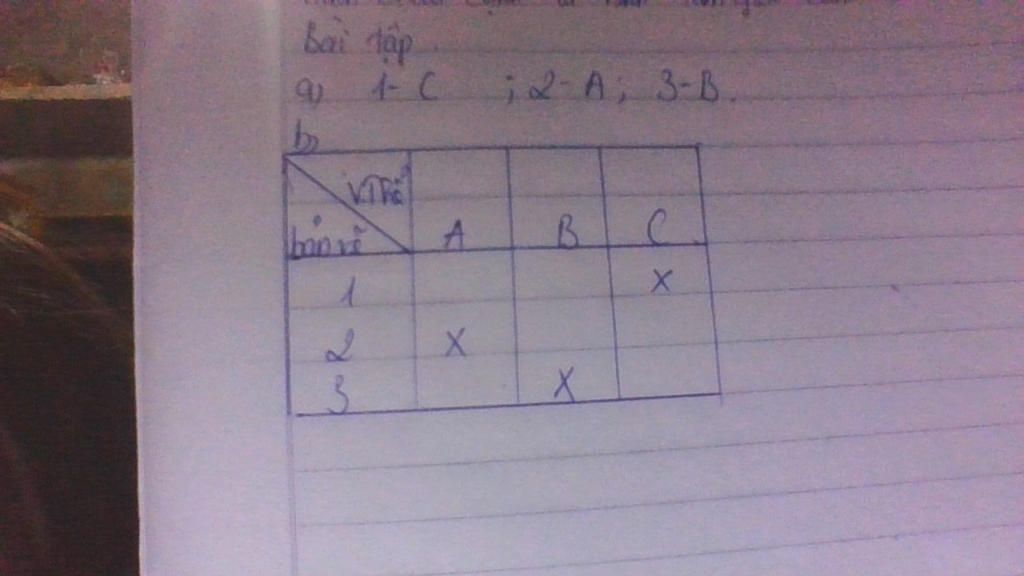 Bài tập.
a) 1-C ; 2-A; 3-B.
b)
V.Thể
bản vẽ A B C
1 X
2 X
3 X